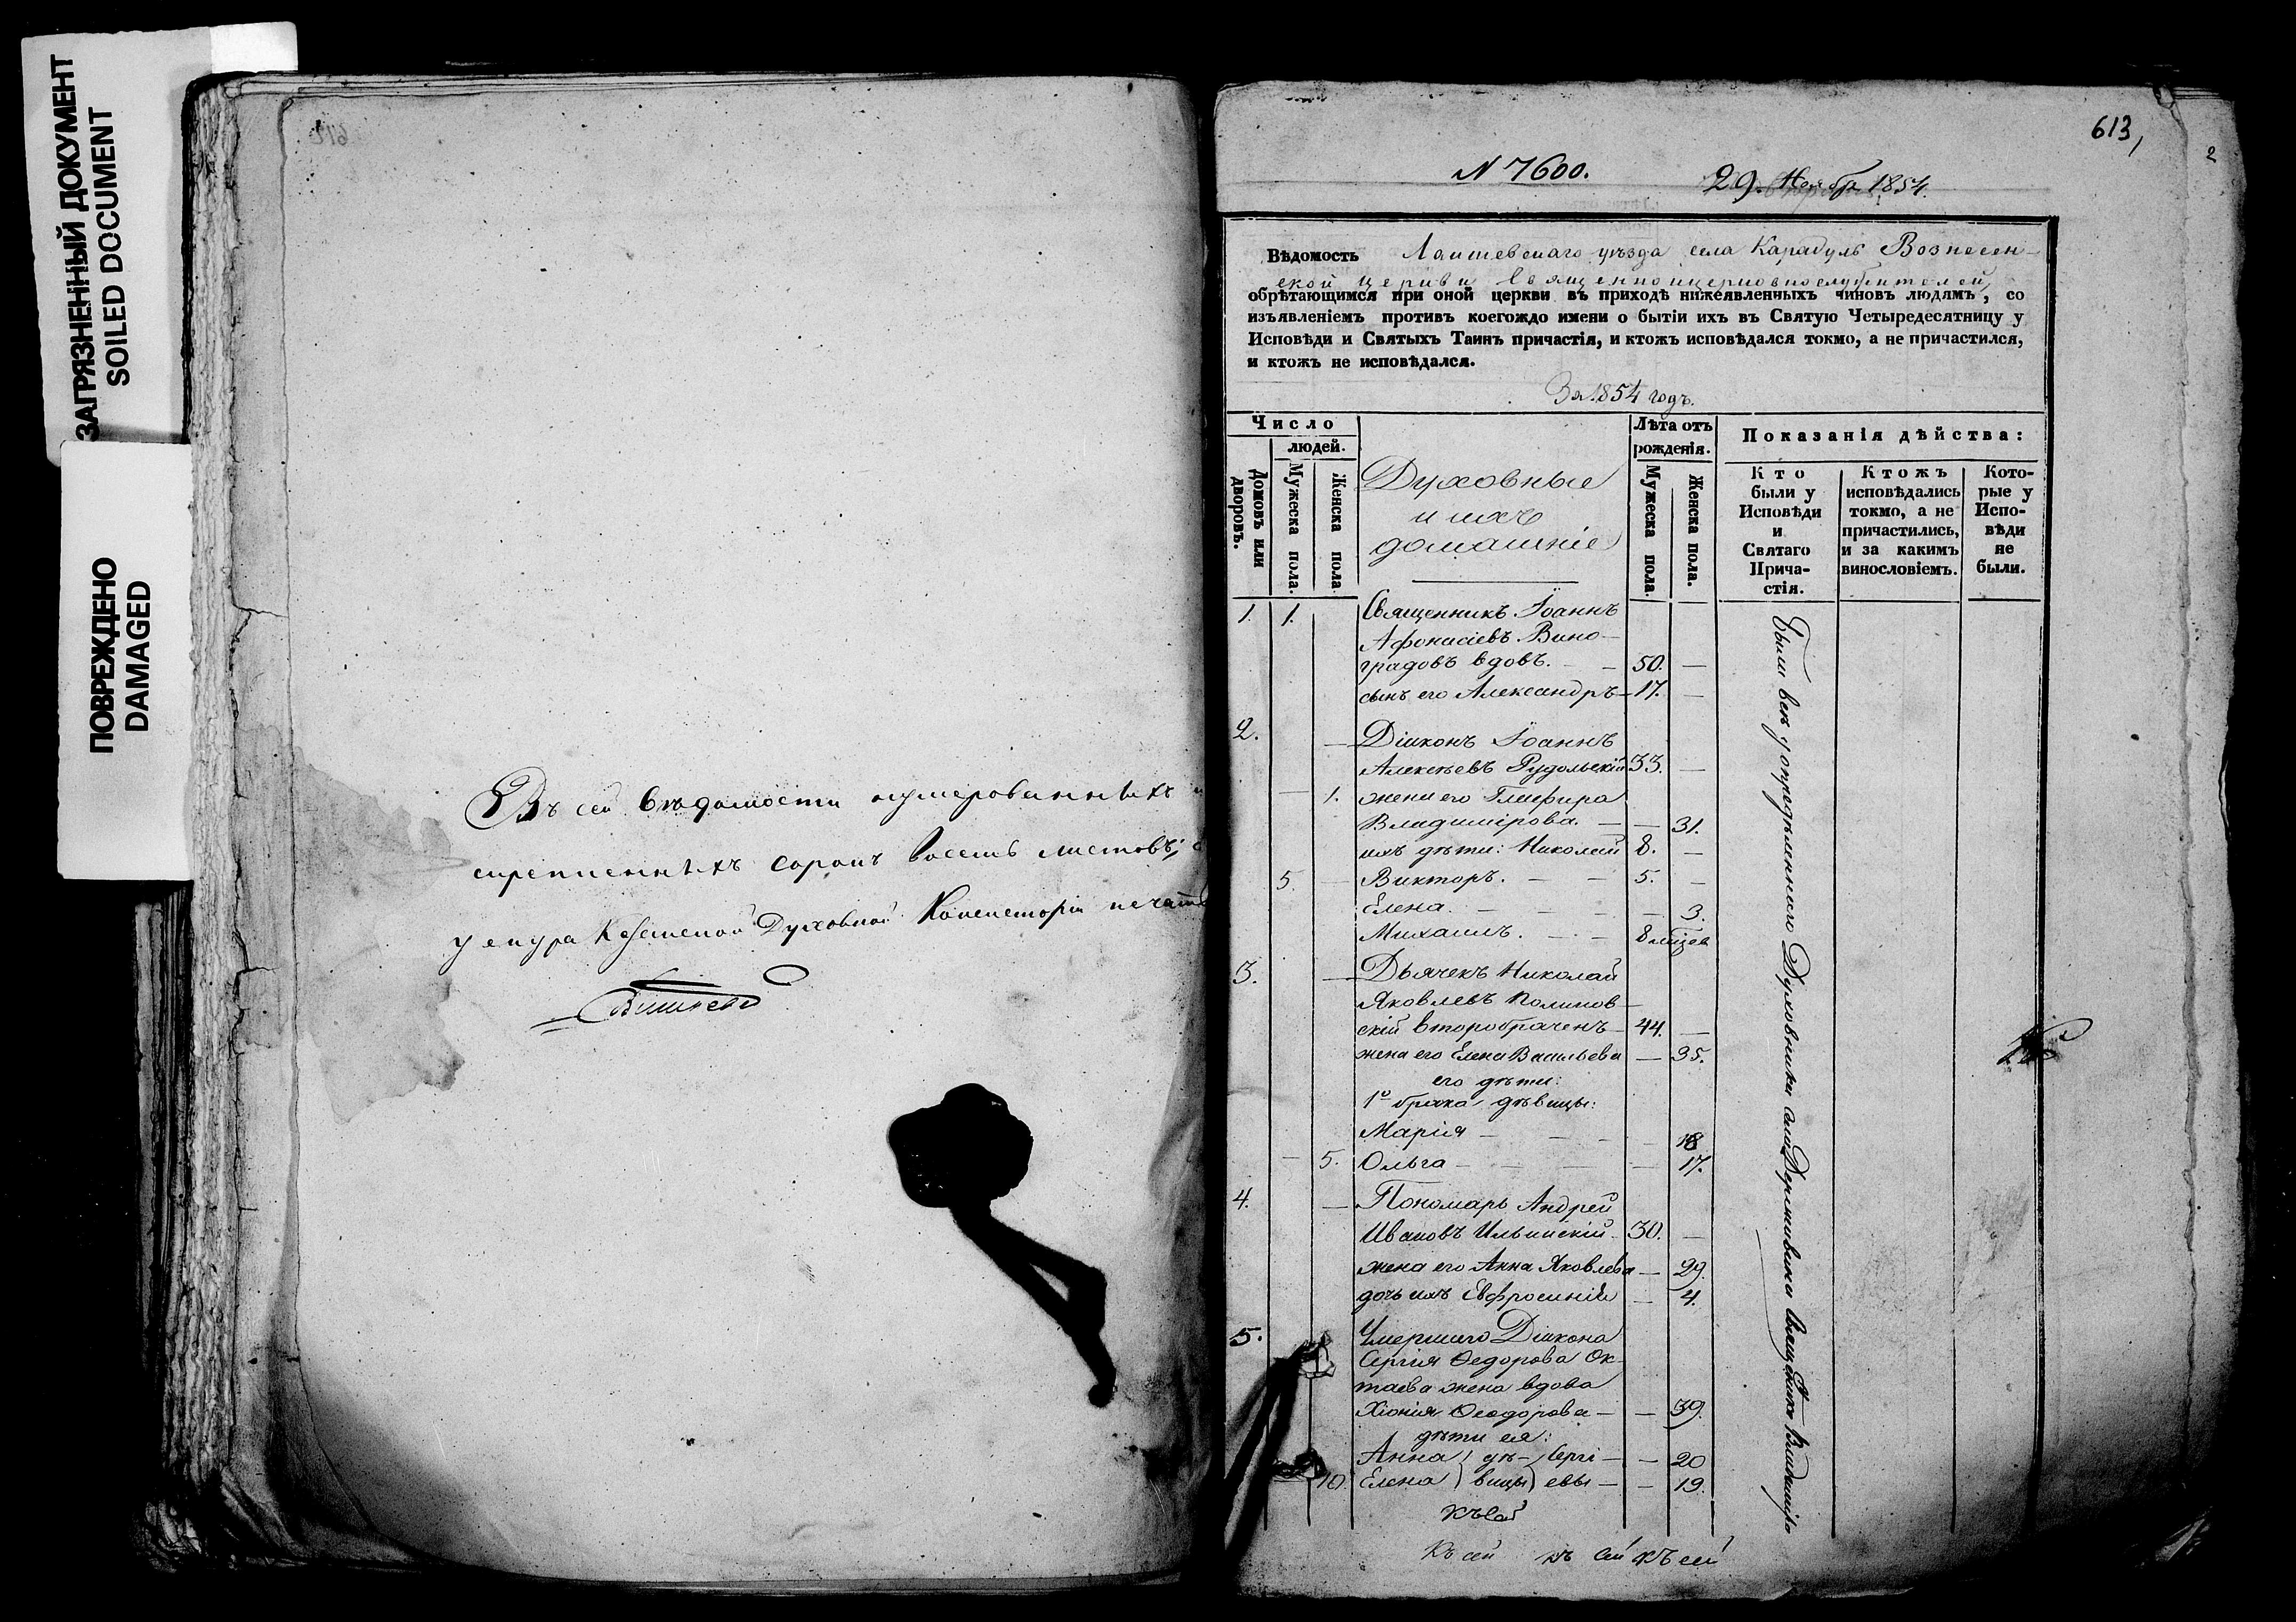 ЗАГРЯЗНЕННЫЙ ДОКУМЕНТ
SOILED DOCUMENT
ПОВРЕЖДЕНО
DAMAGED
Въ сей Вѣдомости нумерованныхъ и
скрепленныхъ сорокъ восемь листовъ; с
у снура Казанской Духовной Консисторіи печать
613,
2
N 7600.
29. Ноябр 1854.
Вѣдомость Лаишевскаго уѣзда села Карадуль Вознесен-
ской церкви Священноицерковнослужителей,
обрѣтающимся при оной церкви въ приходѣ нижеявленныхъ чиновъ людямъ, со
изъявленіемъ противъ коегождо имени о бытіи ихъ въ Святую Четыредесятницу у
Исповѣди и Святыхъ Таинъ причастія, и ктожъ исповѣдался токмо, а не причастился,
и ктожъ не исповѣдался.
За 1854 годъ.
Число
людей.
Домовъ или дворовъ.
Мужеска пола.
Женска пола
Духовные
и ихъ
домашніе
Лѣта отъ
рожденія.
Мужеска пола.
Женска пола.
Показанія дѣйства:
Кто
были у
Исповѣди
и
Святаго
Прича-
стія.
Ктожъ
исповѣдались
токмо, а не
причастились,
и за какимъ
винословіемъ.
Кото-
рые у
Испо-
вѣди
не
были.
1. 1. Священникъ Іоаннъ
Афонасіевъ Вино-
градовъ вдовъ. — 50. —
сынъ его Александръ — 17. —
2. — Діаконъ Іоаннъ
Алексѣевъ Рудольскій 33. —
— 1. жена его Глафира
Владимірова. — — 31.
ихъ дѣти: Николай 8. —
5. — Викторъ. — — 5. —
Елена. — — — — 3.
Михаилъ. — — 8 мцев
3. — Дьячекъ Николай
Яковлевъ Полинов-
скій второбраченъ — 44. —
жена его Елена Васильева — 35.
его дѣти:
1го брака дѣвицы:
Марія — — — — 18
— 5. Ольга — — — — 17.
4. — Пономарь Андрей
Ивановъ Ильинскій. 30. —
жена его Анна Яковлева — 29.
дочь ихъ Евфросинія — 4.
5. Умершаго Діакона
Сергія Федорова Ок-
таева жена вдова
Хіонія Феодорова — — 39.
дѣти ея:
Анна ) дѣ- ) Сергі — — 20
10. Елена ) вицы ) евы — — 19.
Были всѣ у опредѣленнаго Духовника села Священника
Къ сей
Къ сей къ сей Къ сей